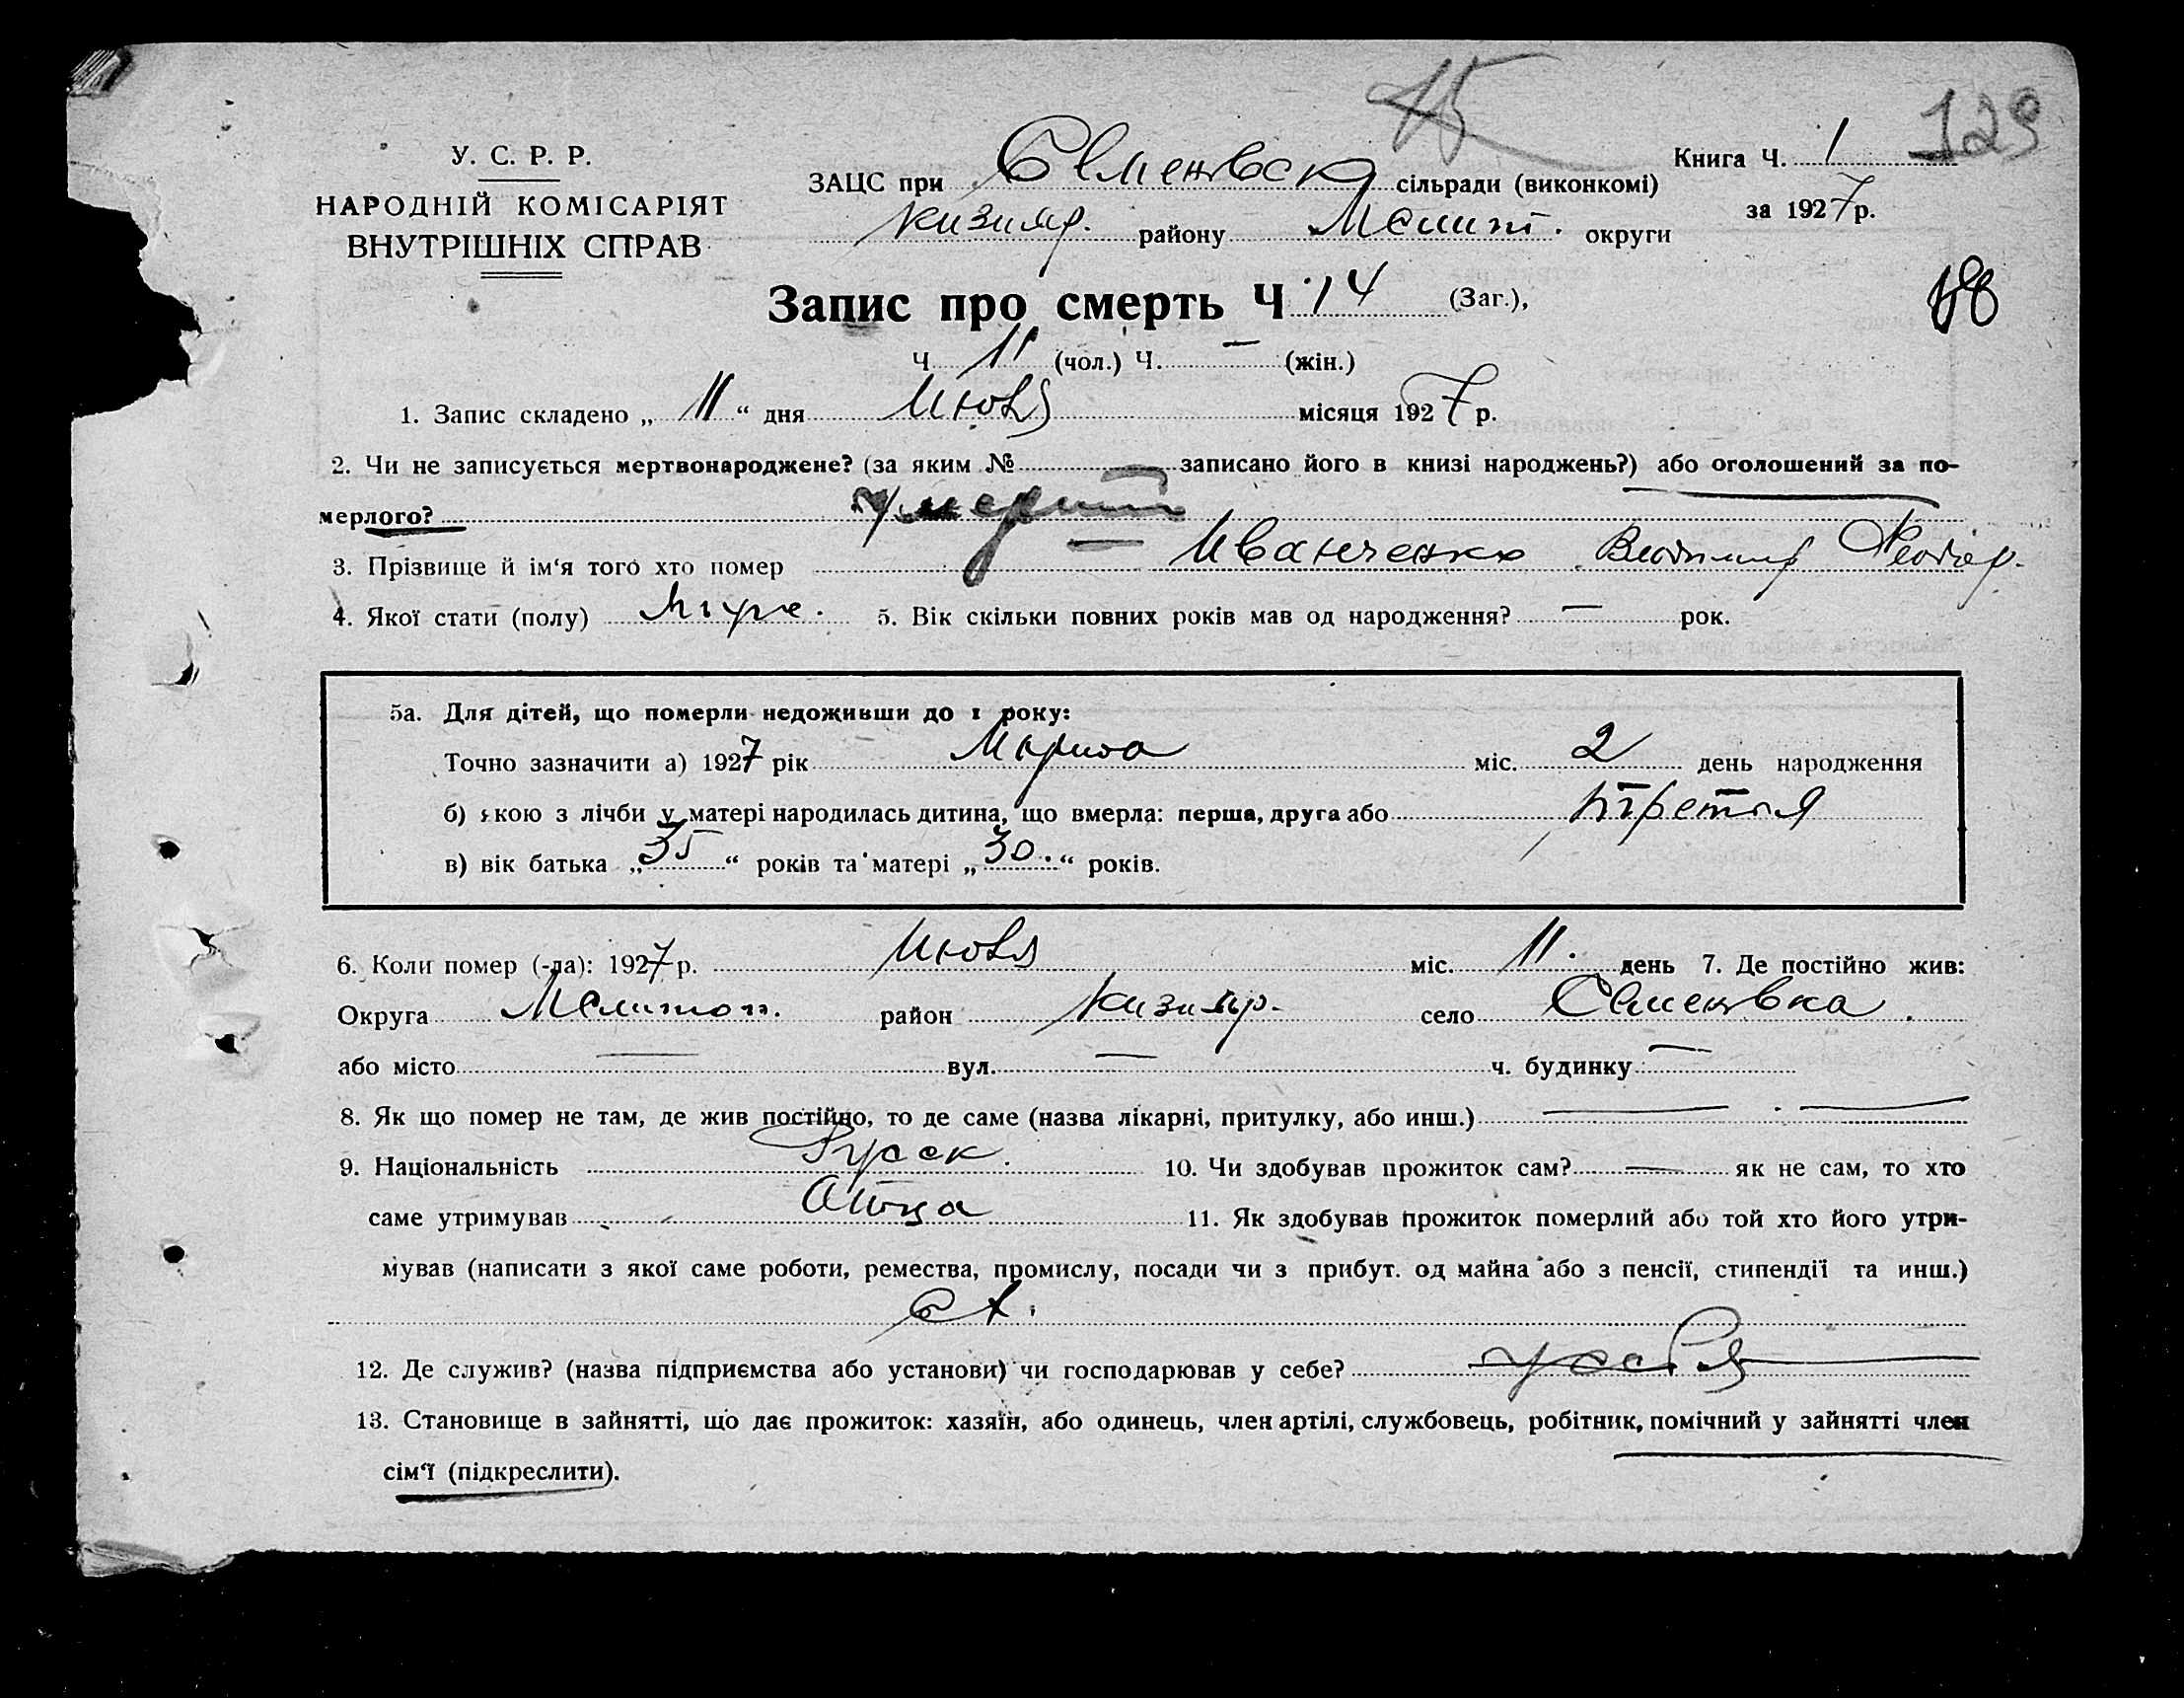 129
У. С. Р. Р.
НАРОДНІЙ КОМІСАРІЯТ
ВНУТРІШНІХ СПРАВ
ЗАЦС при Семеновск сільради (виконкомі)
Кизияр. району Мелит. округи
Книга Ч. 1
за 1927 р.
Запис про смерть Ч 14 (Заг.),
Ч. 11 (чол.) Ч. — (жін.)
1. Запис складено „ 11 “ дня Июля місяця 1927 р.
2. Чи не записується мертвонароджене? (за яким № — записано його в книзі народжень?) або оголошений за по-
мерлого? умерший
3. Прізвище й ім‘я того хто помер Иванченко Владимир Феодор.
4. Якої стати (полу) Муж. 5. Вік скільки повних років мав од народження? — рок.
5а. Для дітей, що померли недоживши до 1 року:
Точно зазначити а) 1927 рік Марта міс. 2 день народження
б) якою з лічби у матері народилась дитина, що вмерла: перша, друга або третья
в) вік батька „ 35 “ років та матері „ 30. “ років.
6. Коли помер (-ла): 1927 р. Июля міс. 11. день 7. Де постійно жив:
Округа Мелитоп. район Кизияр. село Семеновка.
або місто — вул. — ч. будинку —
8. Як що помер не там, де жив постійно, то де саме (назва лікарні, притулку, або инш.) —
9. Національність Русск. 10. Чи здобував прожиток сам? — як не сам, то хто
саме утримував Отца 11. Як здобував прожиток померлий або той хто його утри-
мував (написати з якої саме роботи, ремества, промислу, посади чи з прибут. од майна або з пенсії, стипендії та инш.)
12. Де служив? (назва підприємства або установи) чи господарював у себе? у себя
13. Становище в зайнятті, що дає прожиток: хазяїн, або одинець, член артілі, службовець, робітник, помічний у зайнятті член
сім‘ї (підкреслити).